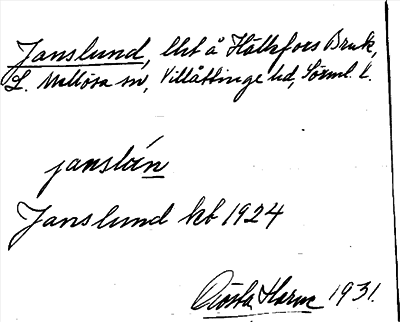 Janslund, lht å Hällefors Bruk,
L. Mellösa sn, Villåttinge hd, Sörml. l.
janslún
Janslund kb 1924
Gösta Harne 1931.